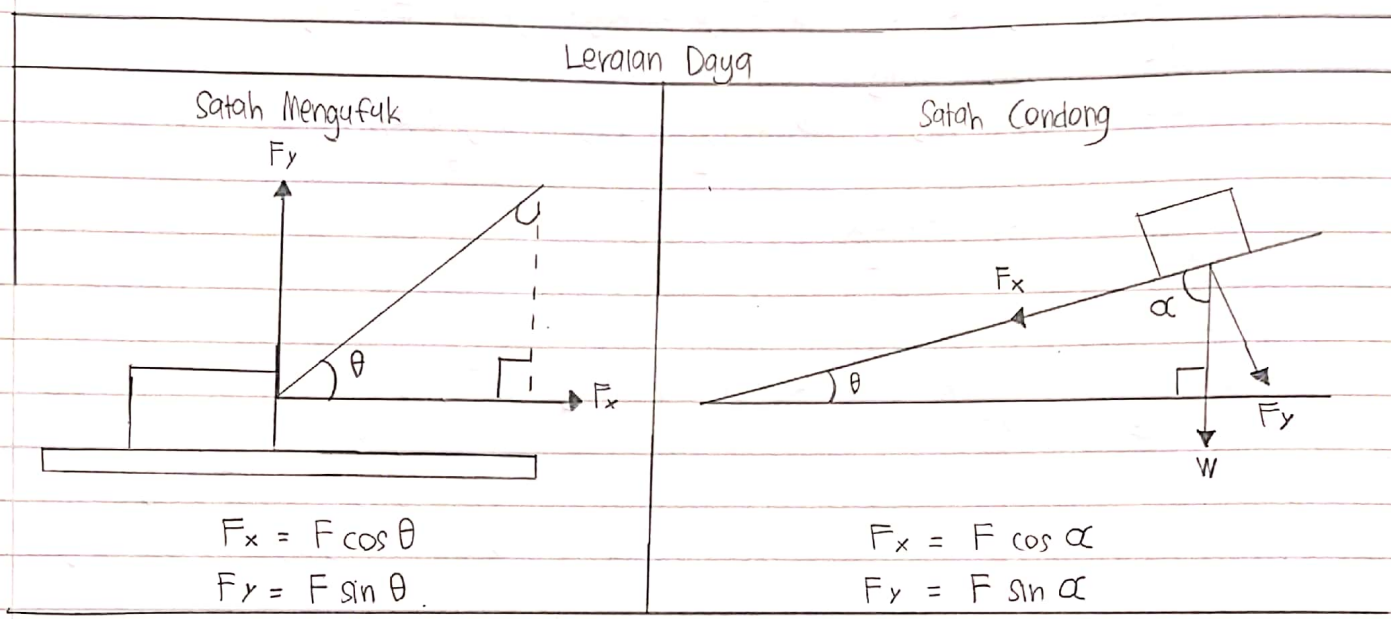 Leraian Daya
Satah Mengufuk
Fy
θ
Fx
Fx = F cos θ
Fy = F sin θ.
Satah Condong
Fx
α
θ
Fy
W
Fx = F cos α
Fy = F sin α